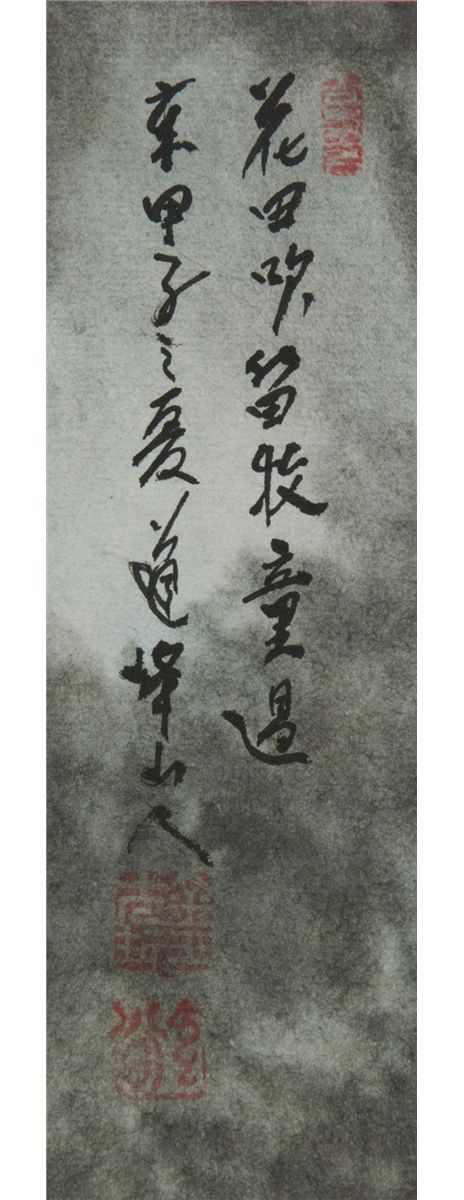 花田吹笛牧童過
甲子之夏道峰山人